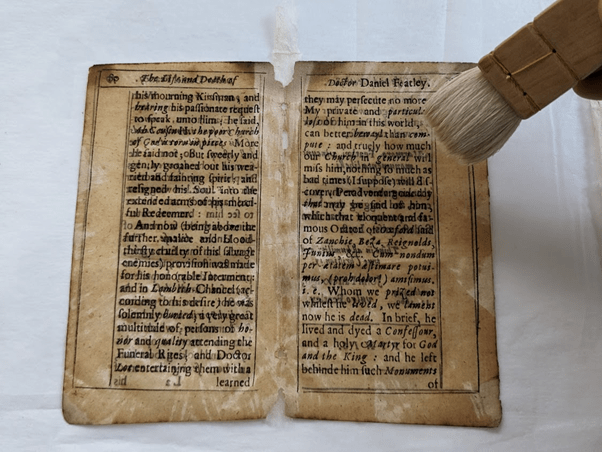 80 The Life and Death of
his mourning Kinsman, and
hearing his passionate request
to speak unto him; he said,
Ah Cousin! the poor Church
of God is torn in pieces. More
he said not; But sweetly and
gently groaned out his wea-
ried and fainting spirit; and
resigned his Soul into the
extended arms of his merci-
ful Redeemer.
And now (being above the
further malice and blood-
thirsty cruelty of his savage
enemies) provision was made
for his honorable Interment;
and in Lambeth Chancel (ac-
cording to his desire) he was
solemnly buried; a very great
multitude of persons of ho-
nor and quality attending the
Funeral Rites; and Doctor
Leo entertaining them with a
learned
Doctor Daniel Featley.
they may persecute no more
My private and particular
loss of him in this world,
can better bewail than com-
pute: and truly how much
our Church in general will
miss him, nothing so much as
bad times (I suppose) will dis-
cover. Peradventure
that may be said of him,
which that eloquent and fa-
mous Orator of
of Zanchie, Beza, Reignolds,
Junius &c. Cum nondum
per ætatem æstimare potui-
mus, (proh dolor!) amisimus,
i. e. Whom we prized not
whilest he lived, we lament
now he is dead. In brief, he
lived and dyed a Confessour,
and a holy Martyr for God
and the King: and he left
behinde him such Monuments
of